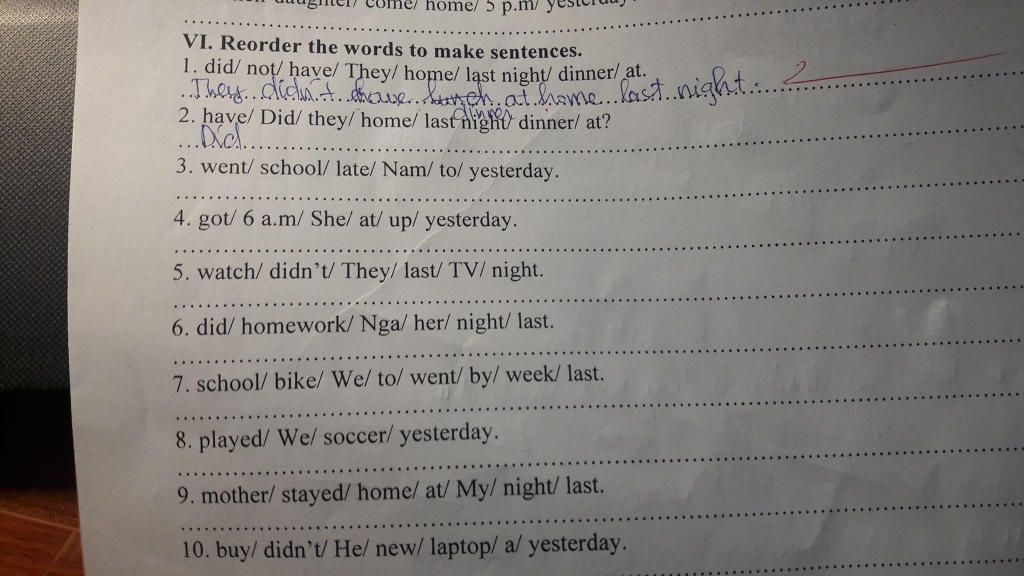 daughter/ come/ home/ 5 p.m/ yesterday
VI. Reorder the words to make sentences.
1. did/ not/ have/ They/ home/ last night/ dinner/ at.
They didn't have lunch at home last night.
dinner
2. have/ Did/ they/ home/ last night/ dinner/ at?
Did
3. went/ school/ late/ Nam/ to/ yesterday.
4. got/ 6 a.m/ She/ at/ up/ yesterday.
5. watch/ didn't/ They/ last/ TV/ night.
6. did/ homework/ Nga/ her/ night/ last.
7. school/ bike/ We/ to/ went/ by/ week/ last.
8. played/ We/ soccer/ yesterday.
9. mother/ stayed/ home/ at/ My/ night/ last.
10. buy/ didn't/ He/ new/ laptop/ a/ yesterday.